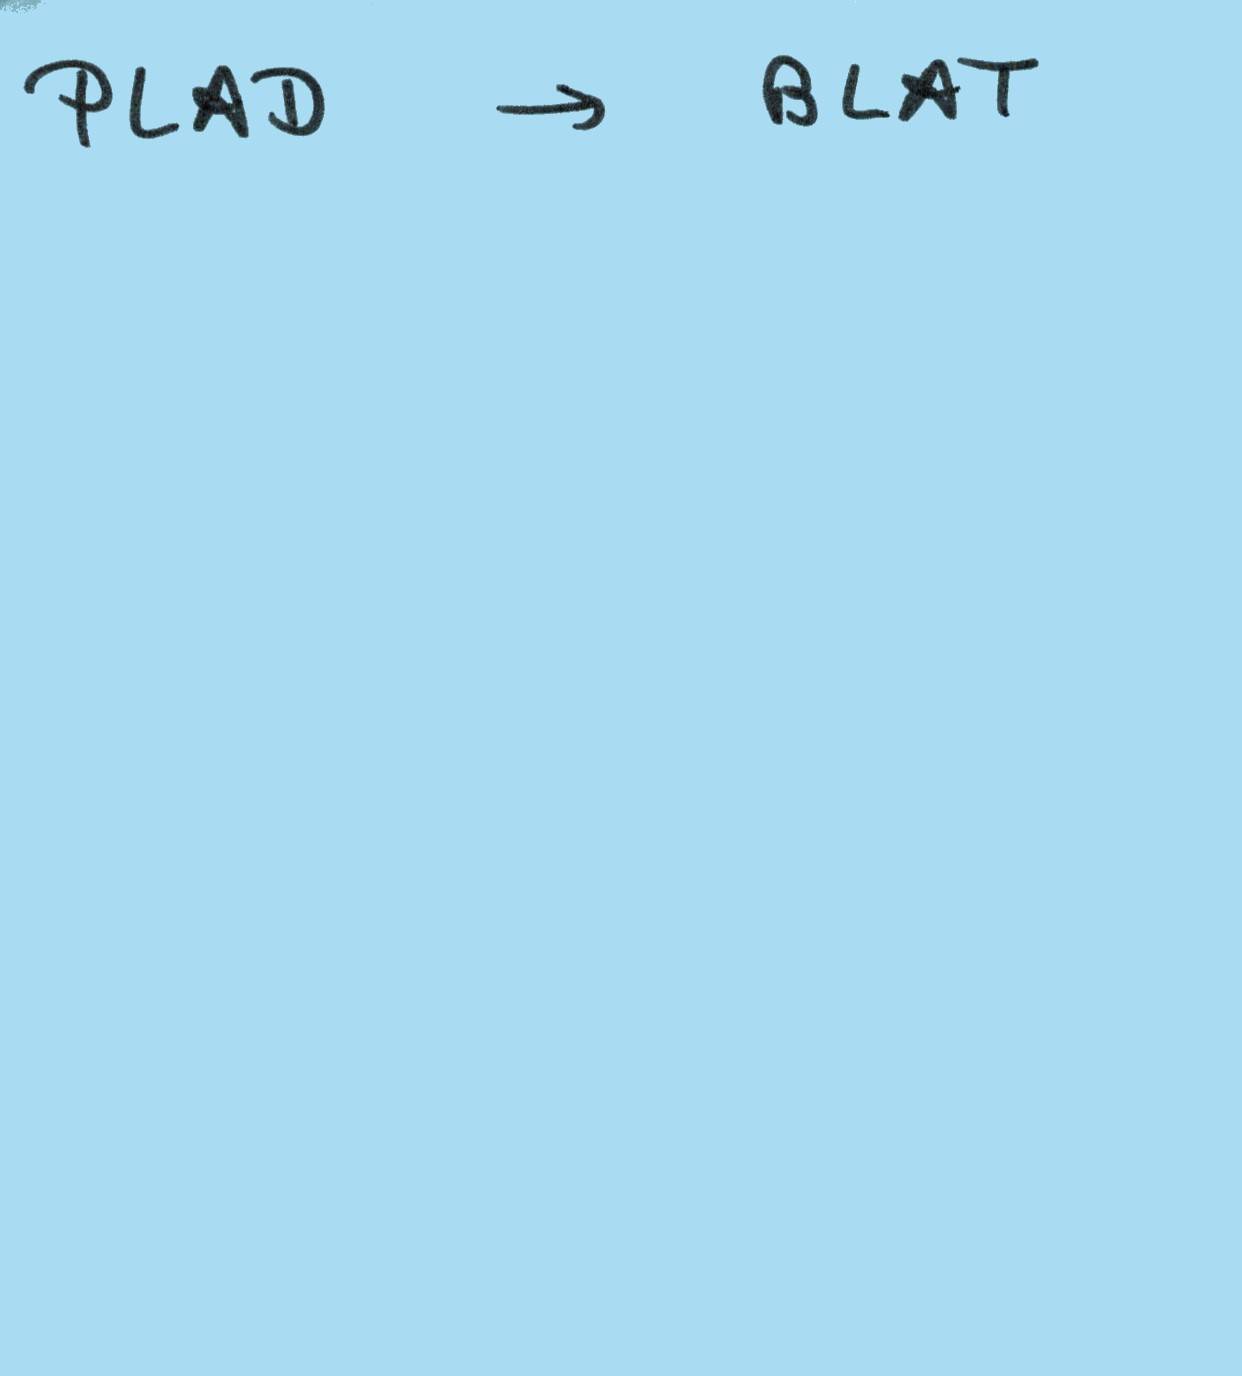 PLAD → BLAT